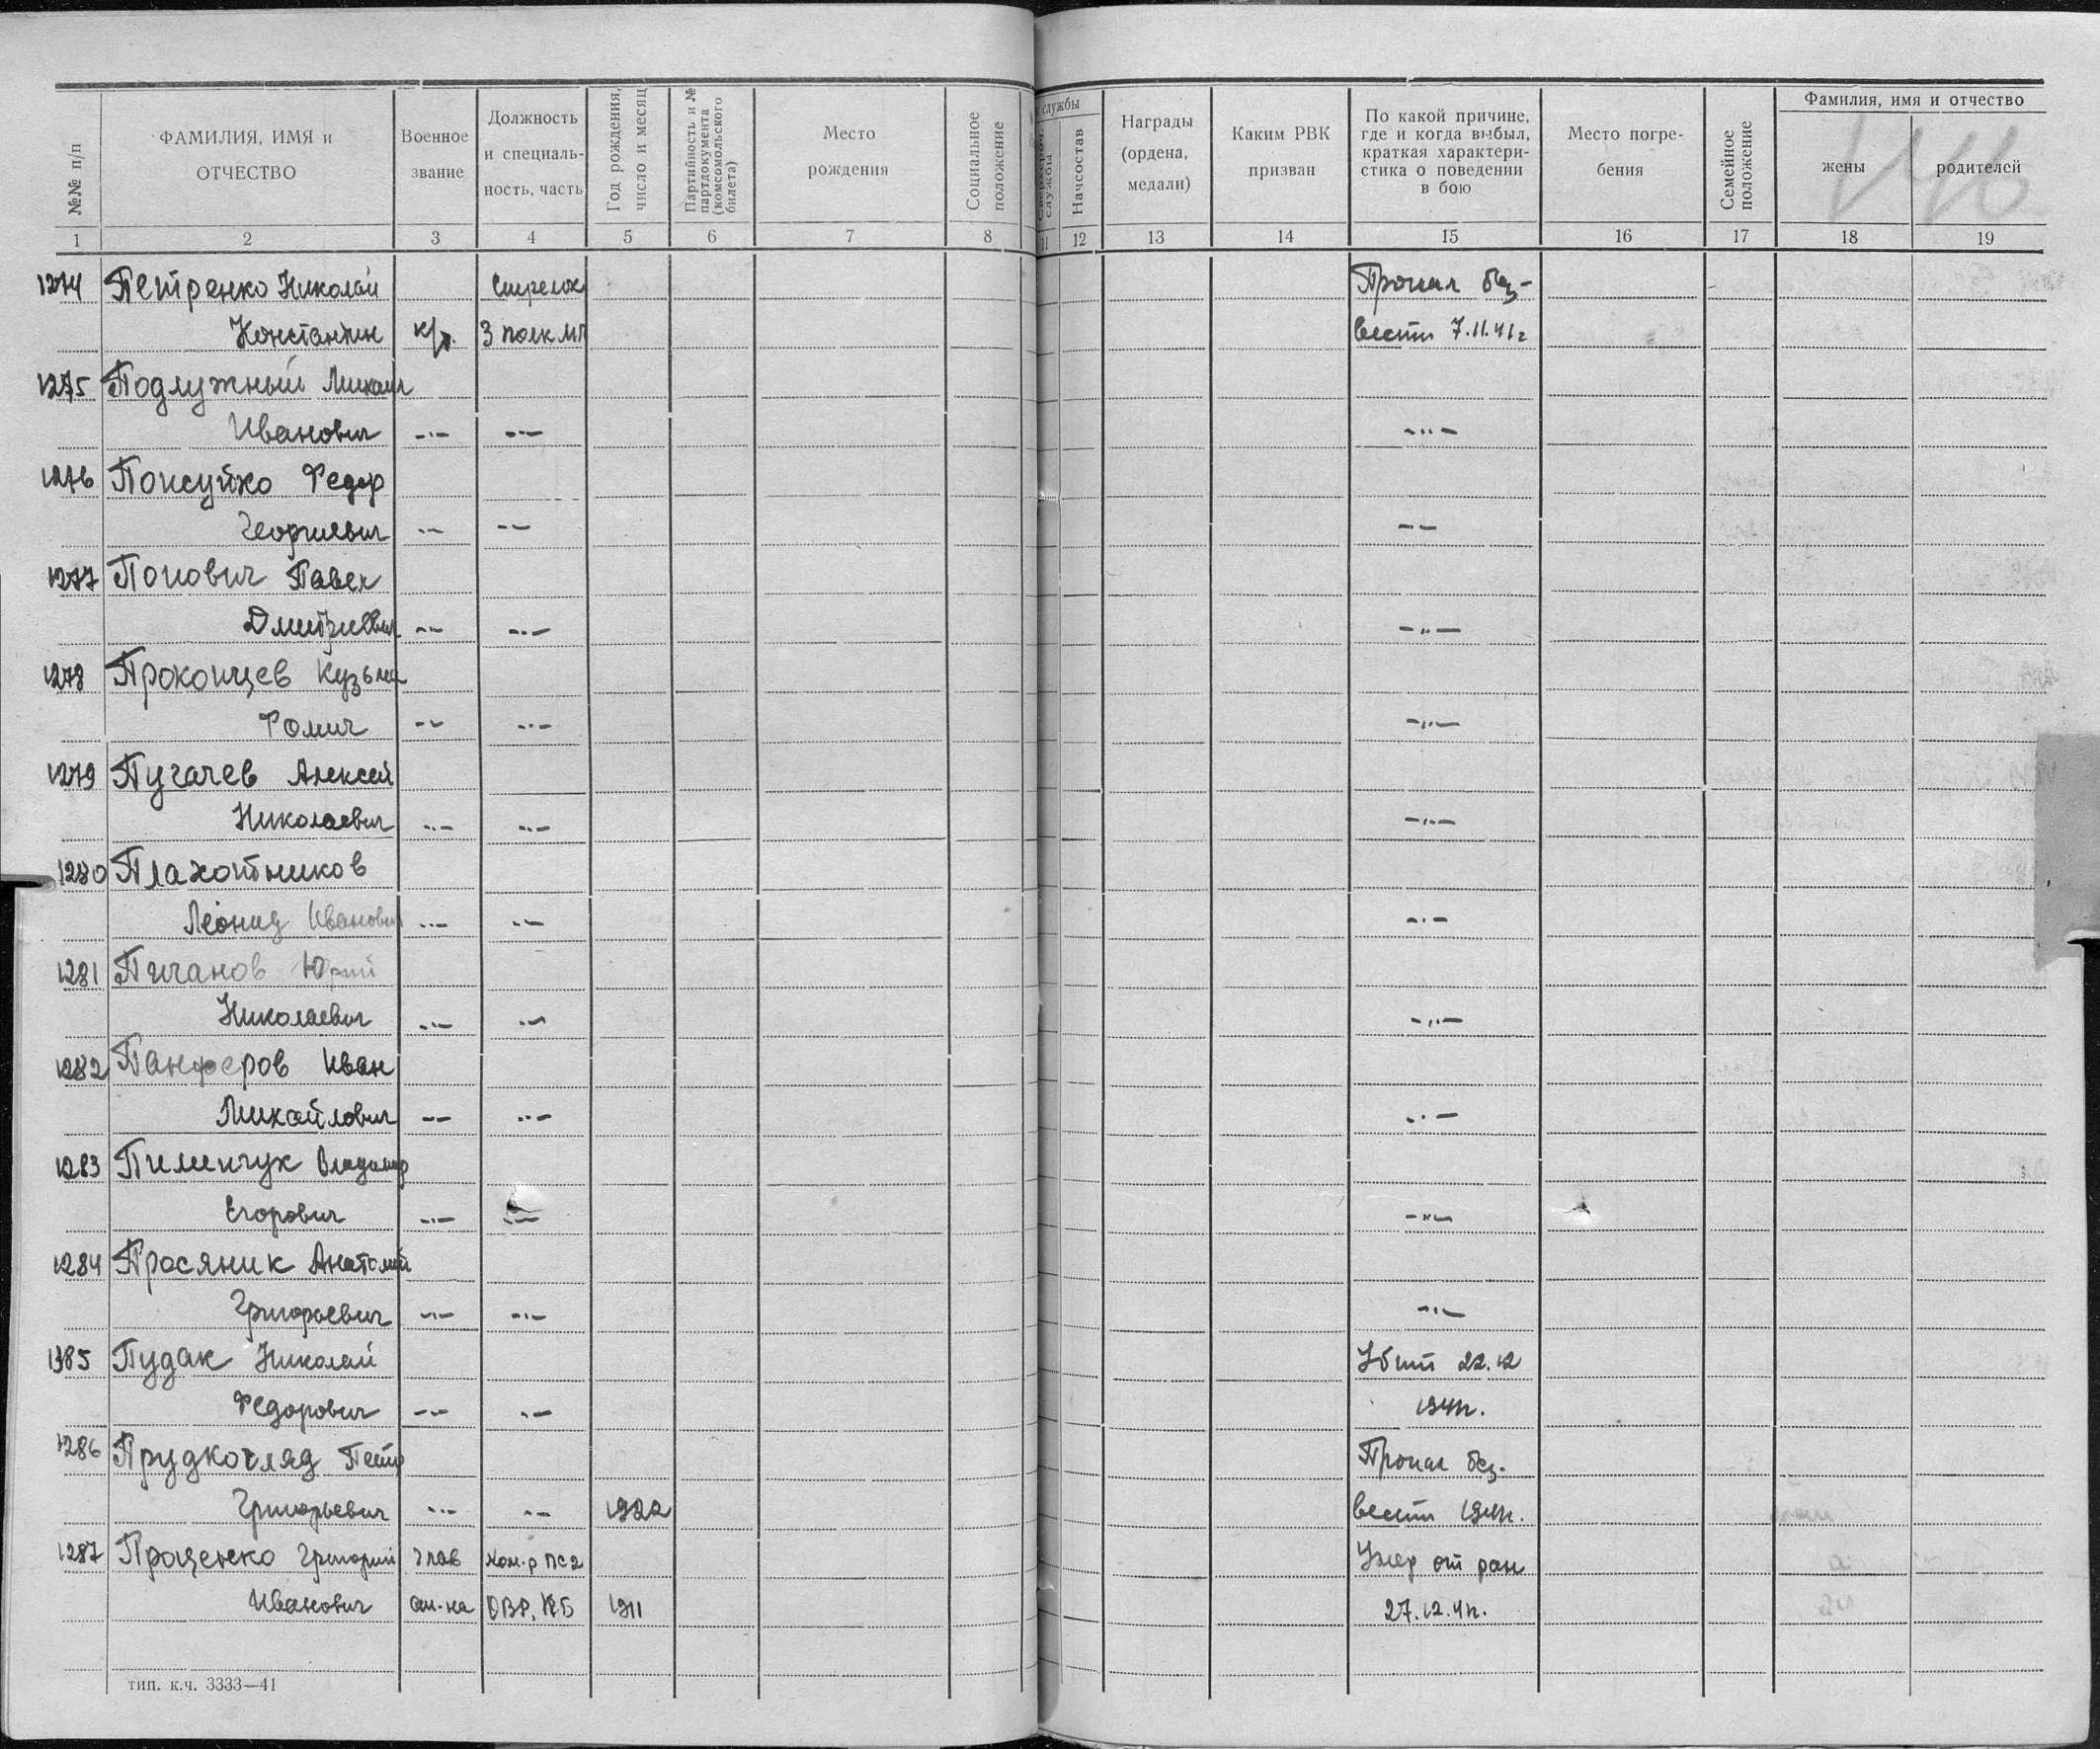 №№ п/п
ФАМИЛИЯ, ИМЯ и ОТЧЕСТВО
Военное звание
Должность и специаль-ность, часть
Год рождения, число и месяц
Партийность и № партдокумента (комсомольского билета)
Место рождения
Социальное положение
службы
Начсостав
Награды (ордена, медали)
Каким РВК призван
По какой причине, где и когда выбыл, краткая характери-стика о поведении в бою
Место погре-бения
Семейное положение
Фамилия, имя и отчество
жены
родителей
1 2 3 4 5 6 7 8 11 12 13 14 15 16 17 18 19
1274 Петренко Николай Стрелок Пропал без-
Константин к/ф. 3 полк МП вести 7.11.41г
1275 Подлужный Михаил
Иванович -"- -"- -"-
1276 Федор
Георгиевич -"- -"- -"-
1277 Попович Павел
Дмитриевич -"- -"- -"-
1278 Прокопцев Кузьма
Фомич -"- -"- -"-
1279 Пугачев Алексей
Николаевич -"- -"- -"-
1280 Плахотников
Леонид Иванович -"- -"- -"-
1281 Пичанов Юрий
Николаевич -"- -"- -"-
1282 Панферов Иван
Михайлович -"- -"- -"-
1283 Пиминчук Владимир
Егорович -"- -"- -"-
1284 Просяник Анатолий
Григорьевич -"- -"- -"-
1385 Пудак Николай Убит 22.12
Федорович -"- -"- 1941г.
1286 Прудкогляд Петр Пропал без-
Григорьевич -"- -"- 1922 вести 1941г.
1287 Проценко Григорий глав Ком-р ПС2 Умер от ран
Иванович ст-на ОВР, КБ 1911 27.12.41г.
тип. к.ч. 3333—41
146